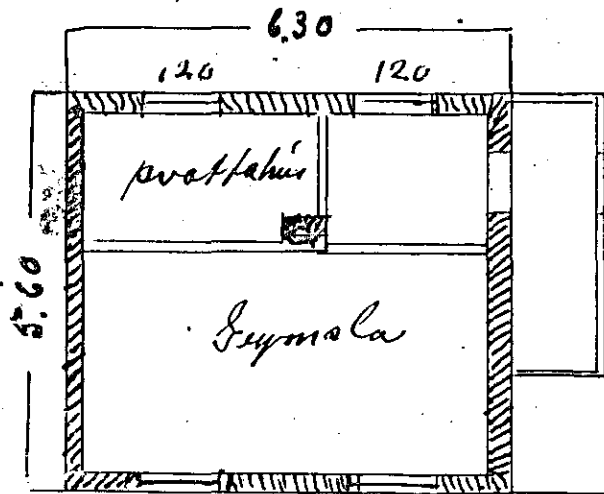 6.30
120 120
þvottahús
5.60
Geymsla